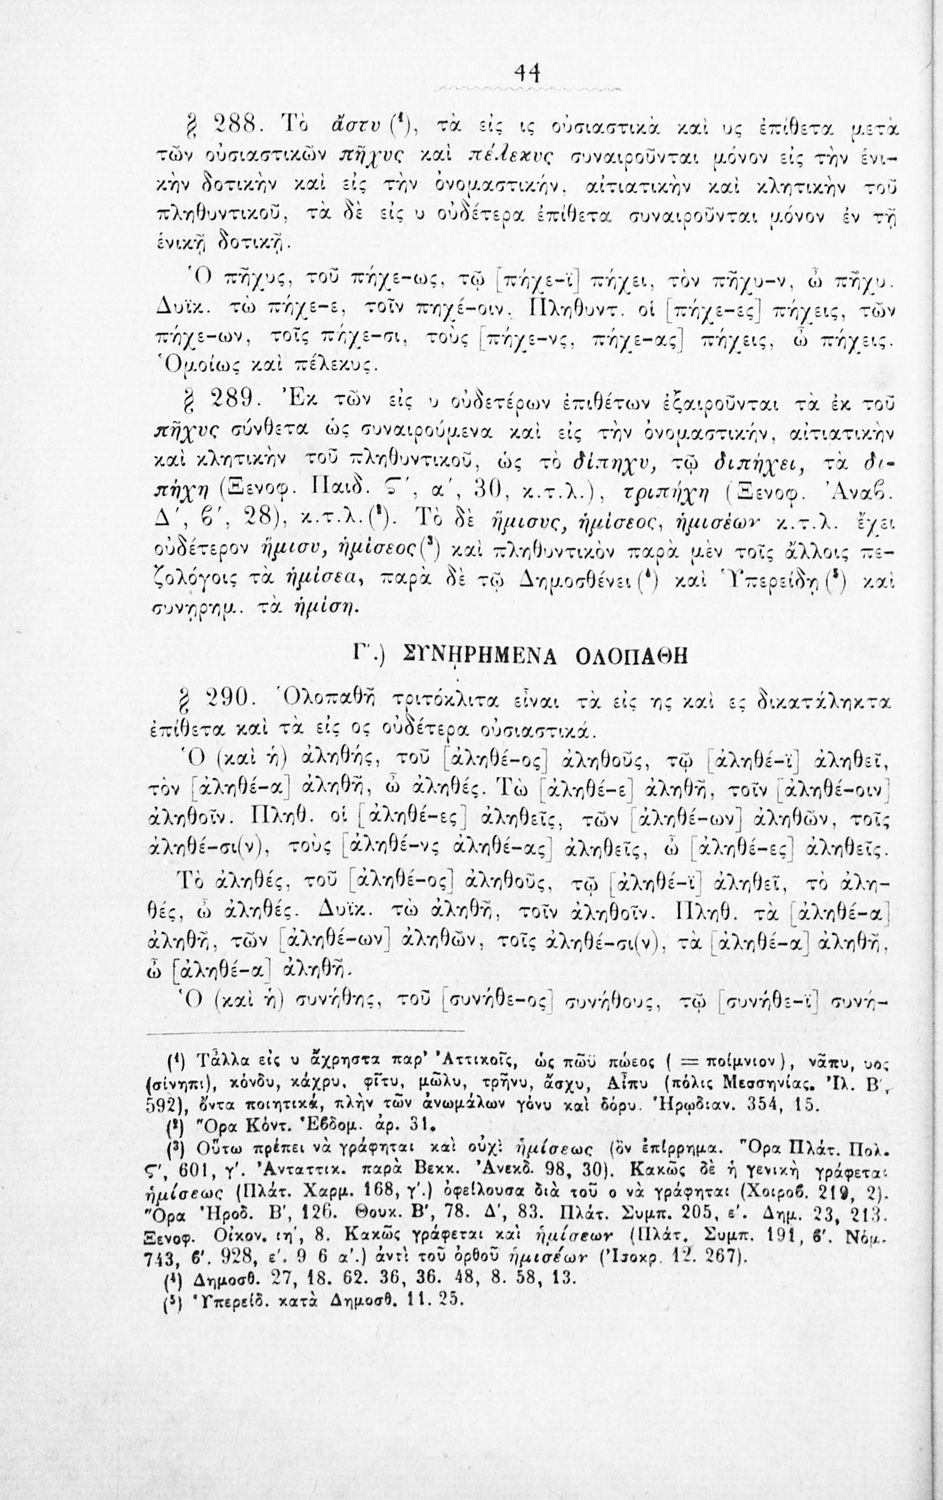 44
§ 288. Τὸ ἄστυ (¹), τὰ εἰς ις οὐσιαστικὰ καὶ υς ἐπίθετα μετὰ
τῶν οὐσιαστικῶν πῆχυς καὶ πέλεκυς συναιροῦνται μόνον εἰς τὴν ἑνι-
κὴν δοτικὴν καὶ εἰς τὴν ὀνομαστικήν, αἰτιατικὴν καὶ κλητικὴν τοῦ
πληθυντικοῦ, τὰ δὲ εἰς υ οὐδέτερα ἐπίθετα συναιροῦνται μόνον ἐν τῇ
ἑνικῇ δοτικῇ.
Ὁ πῆχυς, τοῦ πήχε-ως, τῷ [πήχε-ϊ] πήχει, τὸν πῆχυ-ν, ὦ πῆχυ.
Δυϊκ. τὼ πήχε-ε, τοῖν πηχέ-οιν. Πληθυντ. οἱ [πήχε-ες] πήχεις, τῶν
πήχε-ων, τοῖς πήχε-σι, τοὺς [πήχε-νς, πήχε-ας] πήχεις, ὦ πήχεις.
Ὁμοίως καὶ πέλεκυς.
§ 289. Ἐκ τῶν εἰς υ οὐδετέρων ἐπιθέτων ἐξαιροῦνται τὰ ἐκ τοῦ
πῆχυς σύνθετα ὡς συναιρούμενα καὶ εἰς τὴν ὀνομαστικήν, αἰτιατικὴν
καὶ κλητικὴν τοῦ πληθυντικοῦ, ὡς τὸ δίπηχυ, τῷ διπήχει, τὰ δι-
πήχη (Ξενοφ. Παιδ. Ϛ', α', 30, κ.τ.λ.), τριπήχη (Ξενοφ. Ἀναβ.
Δ', ϐ', 28), κ.τ.λ.(²). Τὸ δὲ ἥμισυς, ἡμίσεος, ἡμισέων κ.τ.λ. ἔχει
οὐδέτερον ἥμισυ, ἡμίσεος(³) καὶ πληθυντικὸν παρὰ μὲν τοῖς ἄλλοις πε-
ζολόγοις τὰ ἡμίσεα, παρὰ δὲ τῷ Δημοσθένει (⁴) καὶ Ὑπερείδῃ (⁵) καὶ
συνῃρημ. τὰ ἡμίση.
Γ'.) ΣΥΝῌΡΗΜΕΝΑ ΟΛΟΠΑΘΗ
§ 290. Ὁλοπαθῆ τριτόκλιτα εἶναι τὰ εἰς ης καὶ ες δικατάληκτα
ἐπίθετα καὶ τὰ εἰς ος οὐδέτερα οὐσιαστικά.
Ὁ (καὶ ἡ) ἀληθής, τοῦ [ἀληθέ-ος] ἀληθοῦς, τῷ [ἀληθέ-ϊ] ἀληθεῖ,
τὸν [ἀληθέ-α] ἀληθῆ, ὦ ἀληθές. Τὼ [ἀληθέ-ε] ἀληθῆ, τοῖν [ἀληθέ-οιν]
ἀληθοῖν. Πληθ. οἱ [ἀληθέ-ες] ἀληθεῖς, τῶν [ἀληθέ-ων] ἀληθῶν, τοῖς
ἀληθέ-σι(ν), τοὺς [ἀληθέ-νς ἀληθέ-ας] ἀληθεῖς, ὦ [ἀληθέ-ες] ἀληθεῖς.
Τὸ ἀληθές, τοῦ [ἀληθέ-ος] ἀληθοῦς, τῷ [ἀληθέ-ϊ] ἀληθεῖ, τὸ ἀλη-
θές, ὦ ἀληθές. Δυϊκ. τὼ ἀληθῆ, τοῖν ἀληθοῖν. Πληθ. τὰ [ἀληθέ-α]
ἀληθῆ, τῶν [ἀληθέ-ων] ἀληθῶν, τοῖς ἀληθέ-σι(ν), τὰ [ἀληθέ-α] ἀληθῆ,
ὦ [ἀληθέ-α] ἀληθῆ.
Ὁ (καὶ ἡ) συνήθης, τοῦ [συνήθε-ος] συνήθους, τῷ [συνήθε-ϊ] συνή-
(¹) Τἆλλα εἰς υ ἄχρηστα παρ' Ἀττικοῖς, ὡς πῶϋ πώεος (=ποίμνιον), νᾶπυ, υος
(σίνηπι), κόνδυ, κάχρυ, φῖτυ, μῶλυ, τρῆνυ, ἄσχυ, Αἶπυ (πόλις Μεσσηνίας. Ἰλ. Β',
592), ὄντα ποιητικά, πλὴν τῶν ἀνωμάλων γόνυ καὶ δόρυ. Ἡρωδιαν. 354, 15.
(²) Ὅρα Κόντ. Ἑβδομ. ἀρ. 31.
(³) Οὕτω πρέπει νὰ γράφηται καὶ οὐχὶ ἡμίσεως (ὂν ἐπίρρημα. Ὅρα Πλάτ. Πολ.
Ϛ', 601, γ'. Ἀνταττικ. παρὰ Βεκκ. Ἀνεκδ. 98, 30). Κακῶς δὲ ἡ γενικὴ γράφεται
ἡμίσεως (Πλάτ. Χαρμ. 168, γ'.) ὀφείλουσα διὰ τοῦ ο νὰ γράφηται (Χοιροβ. 219, 2).
Ὅρα Ἡροδ. Β', 126. Θουκ. Β', 78. Δ', 83. Πλάτ. Συμπ. 205, ε'. Δημ. 23, 213.
Ξενοφ. Οἰκον. ιη', 8. Κακῶς γράφεται καὶ ἡμίσεων (Πλάτ. Συμπ. 191, ϐ'. Νόμ.
743, ϐ'. 928, ε'. 9 6 α'.) ἀντὶ τοῦ ὀρθοῦ ἡμισέων (Ἰσοκρ. 12. 267).
(⁴) Δημοσθ. 27, 18. 62. 36, 36. 48, 8. 58, 13.
(⁵) Ὑπερείδ. κατὰ Δημοσθ. 11. 25.